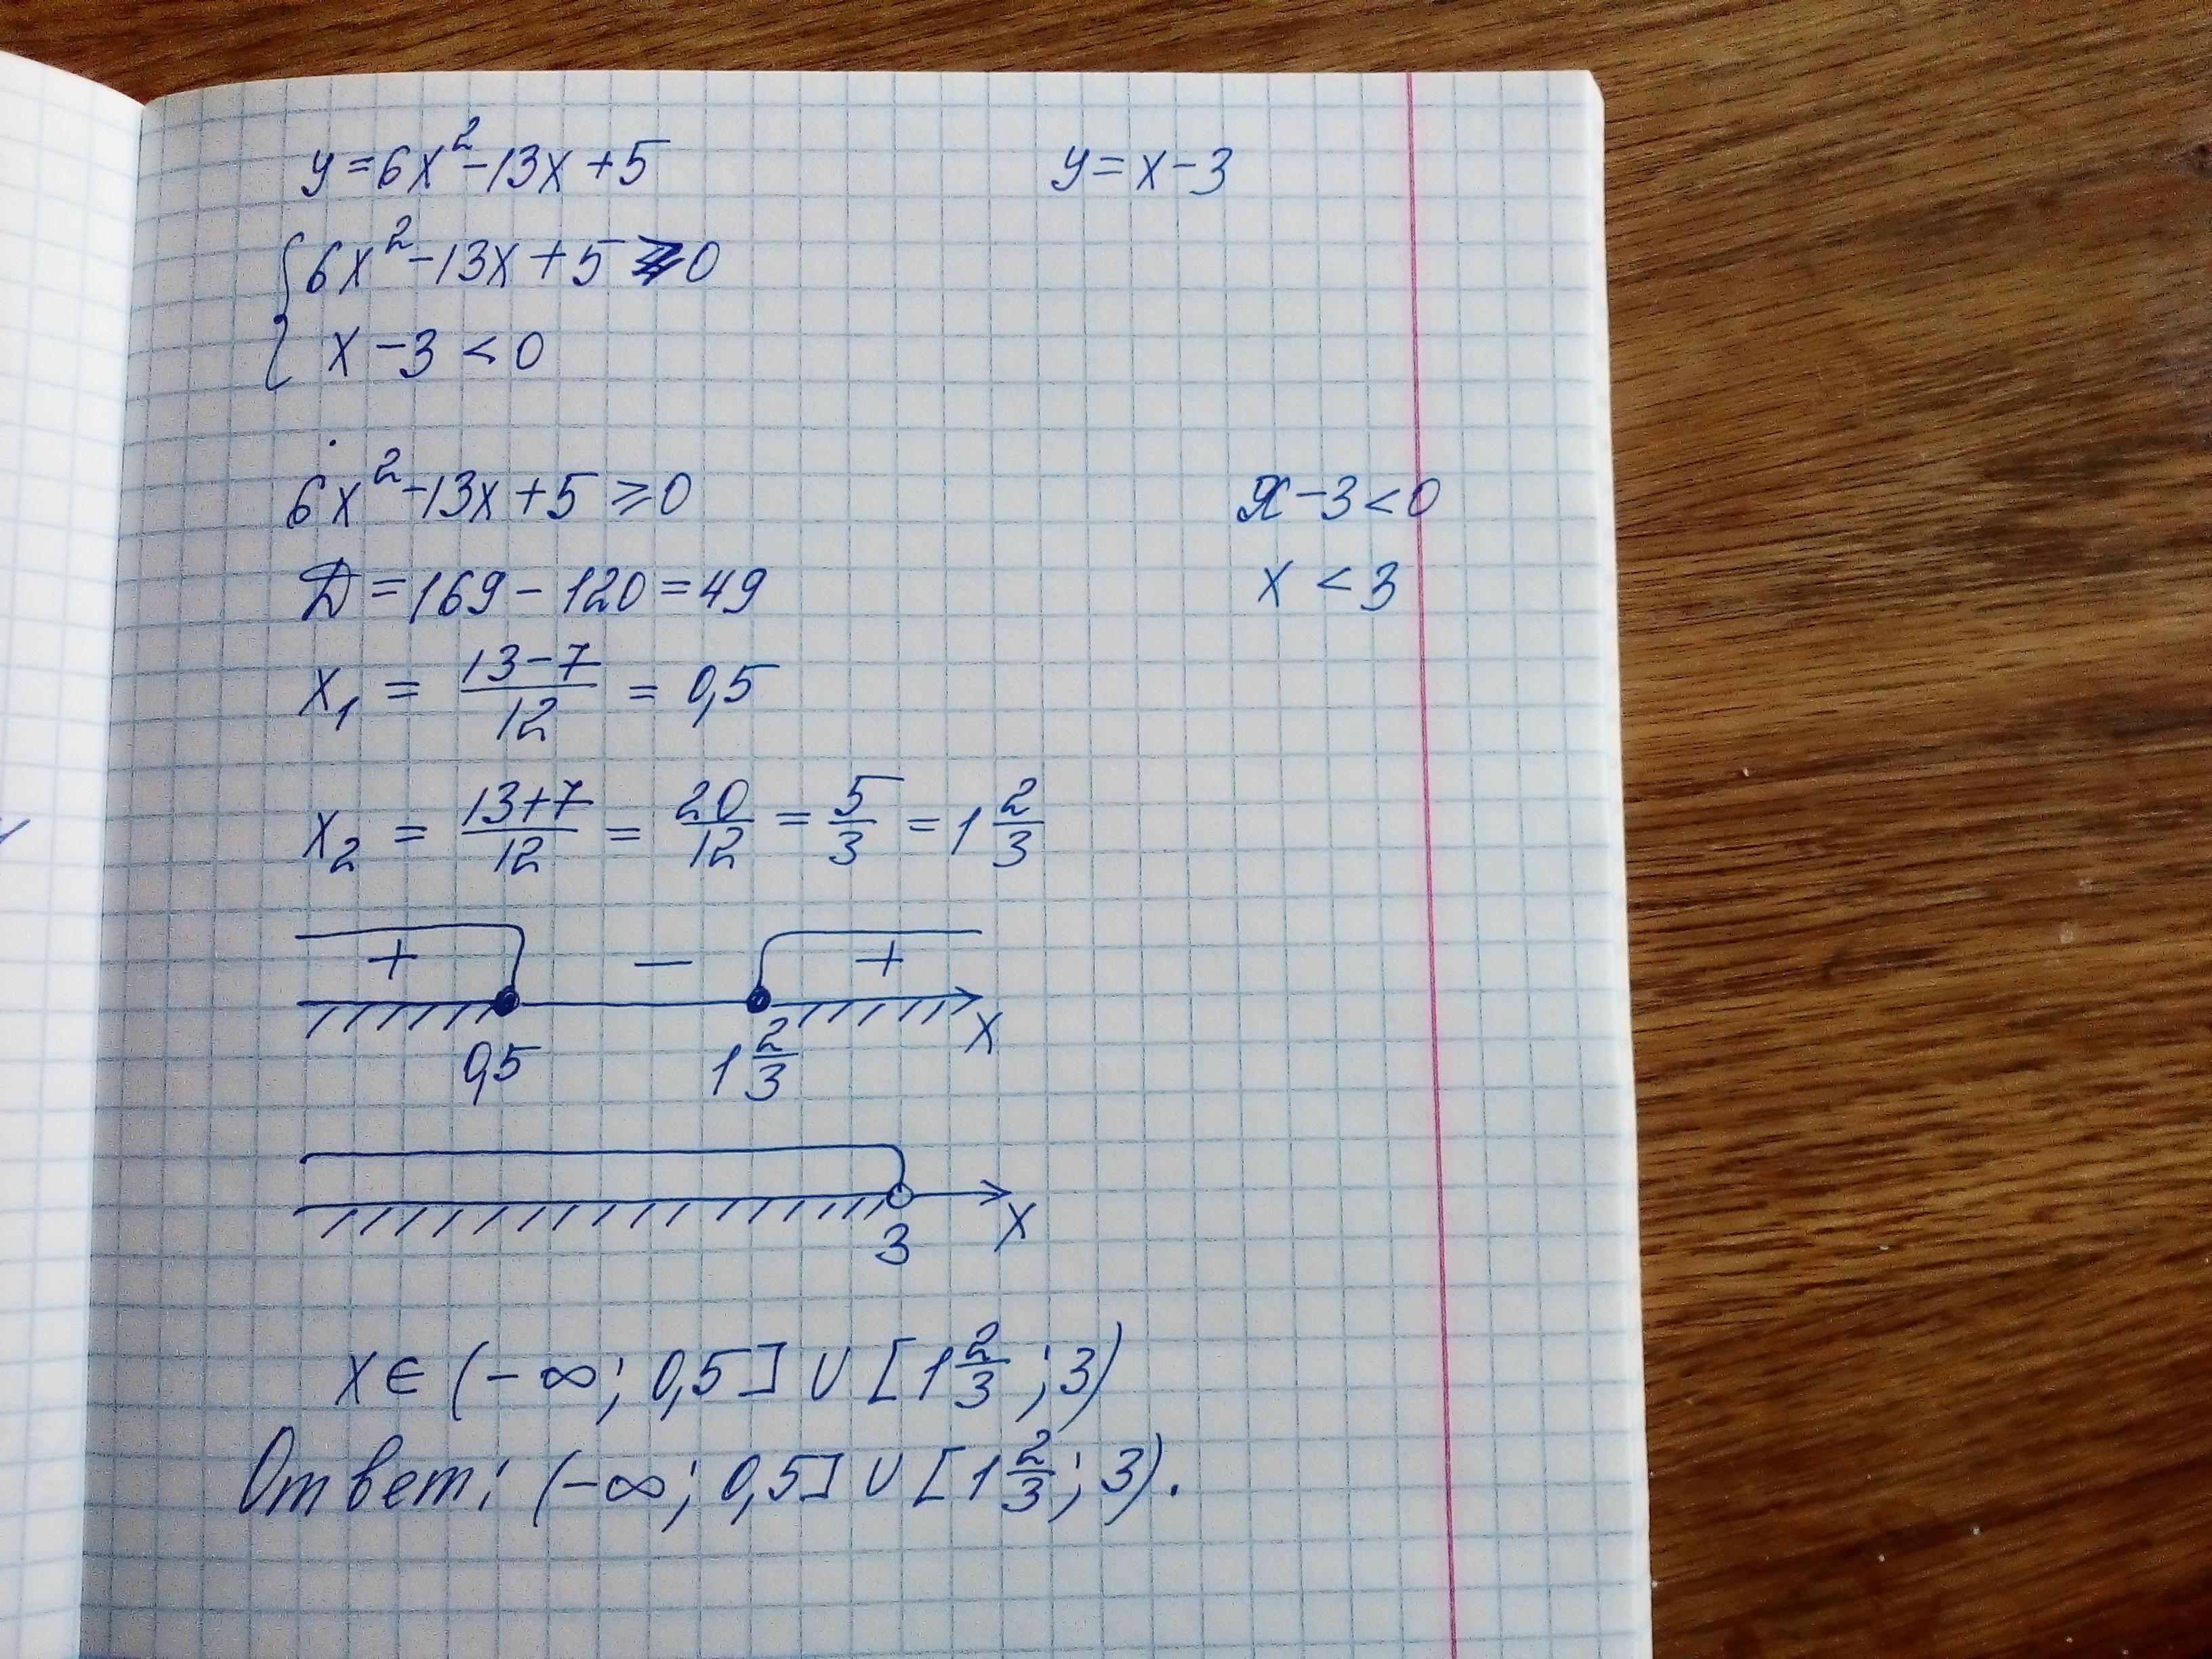 y=6x²-13x+5 y=x-3
{6x²-13x+5⩾0
x-3<0
6x²-13x+5⩾0 x-3<0
D=169-120=49 x<3
x₁ = (13-7)/12 = 0,5
x₂ = (13+7)/12 = 20/12 = 5/3 = 1 2/3
+ − +
0,5 1 2/3 x
3 x
x∈(-∞; 0,5]∪[1 2/3; 3)
Ответ: (-∞; 0,5]∪[1 2/3; 3).